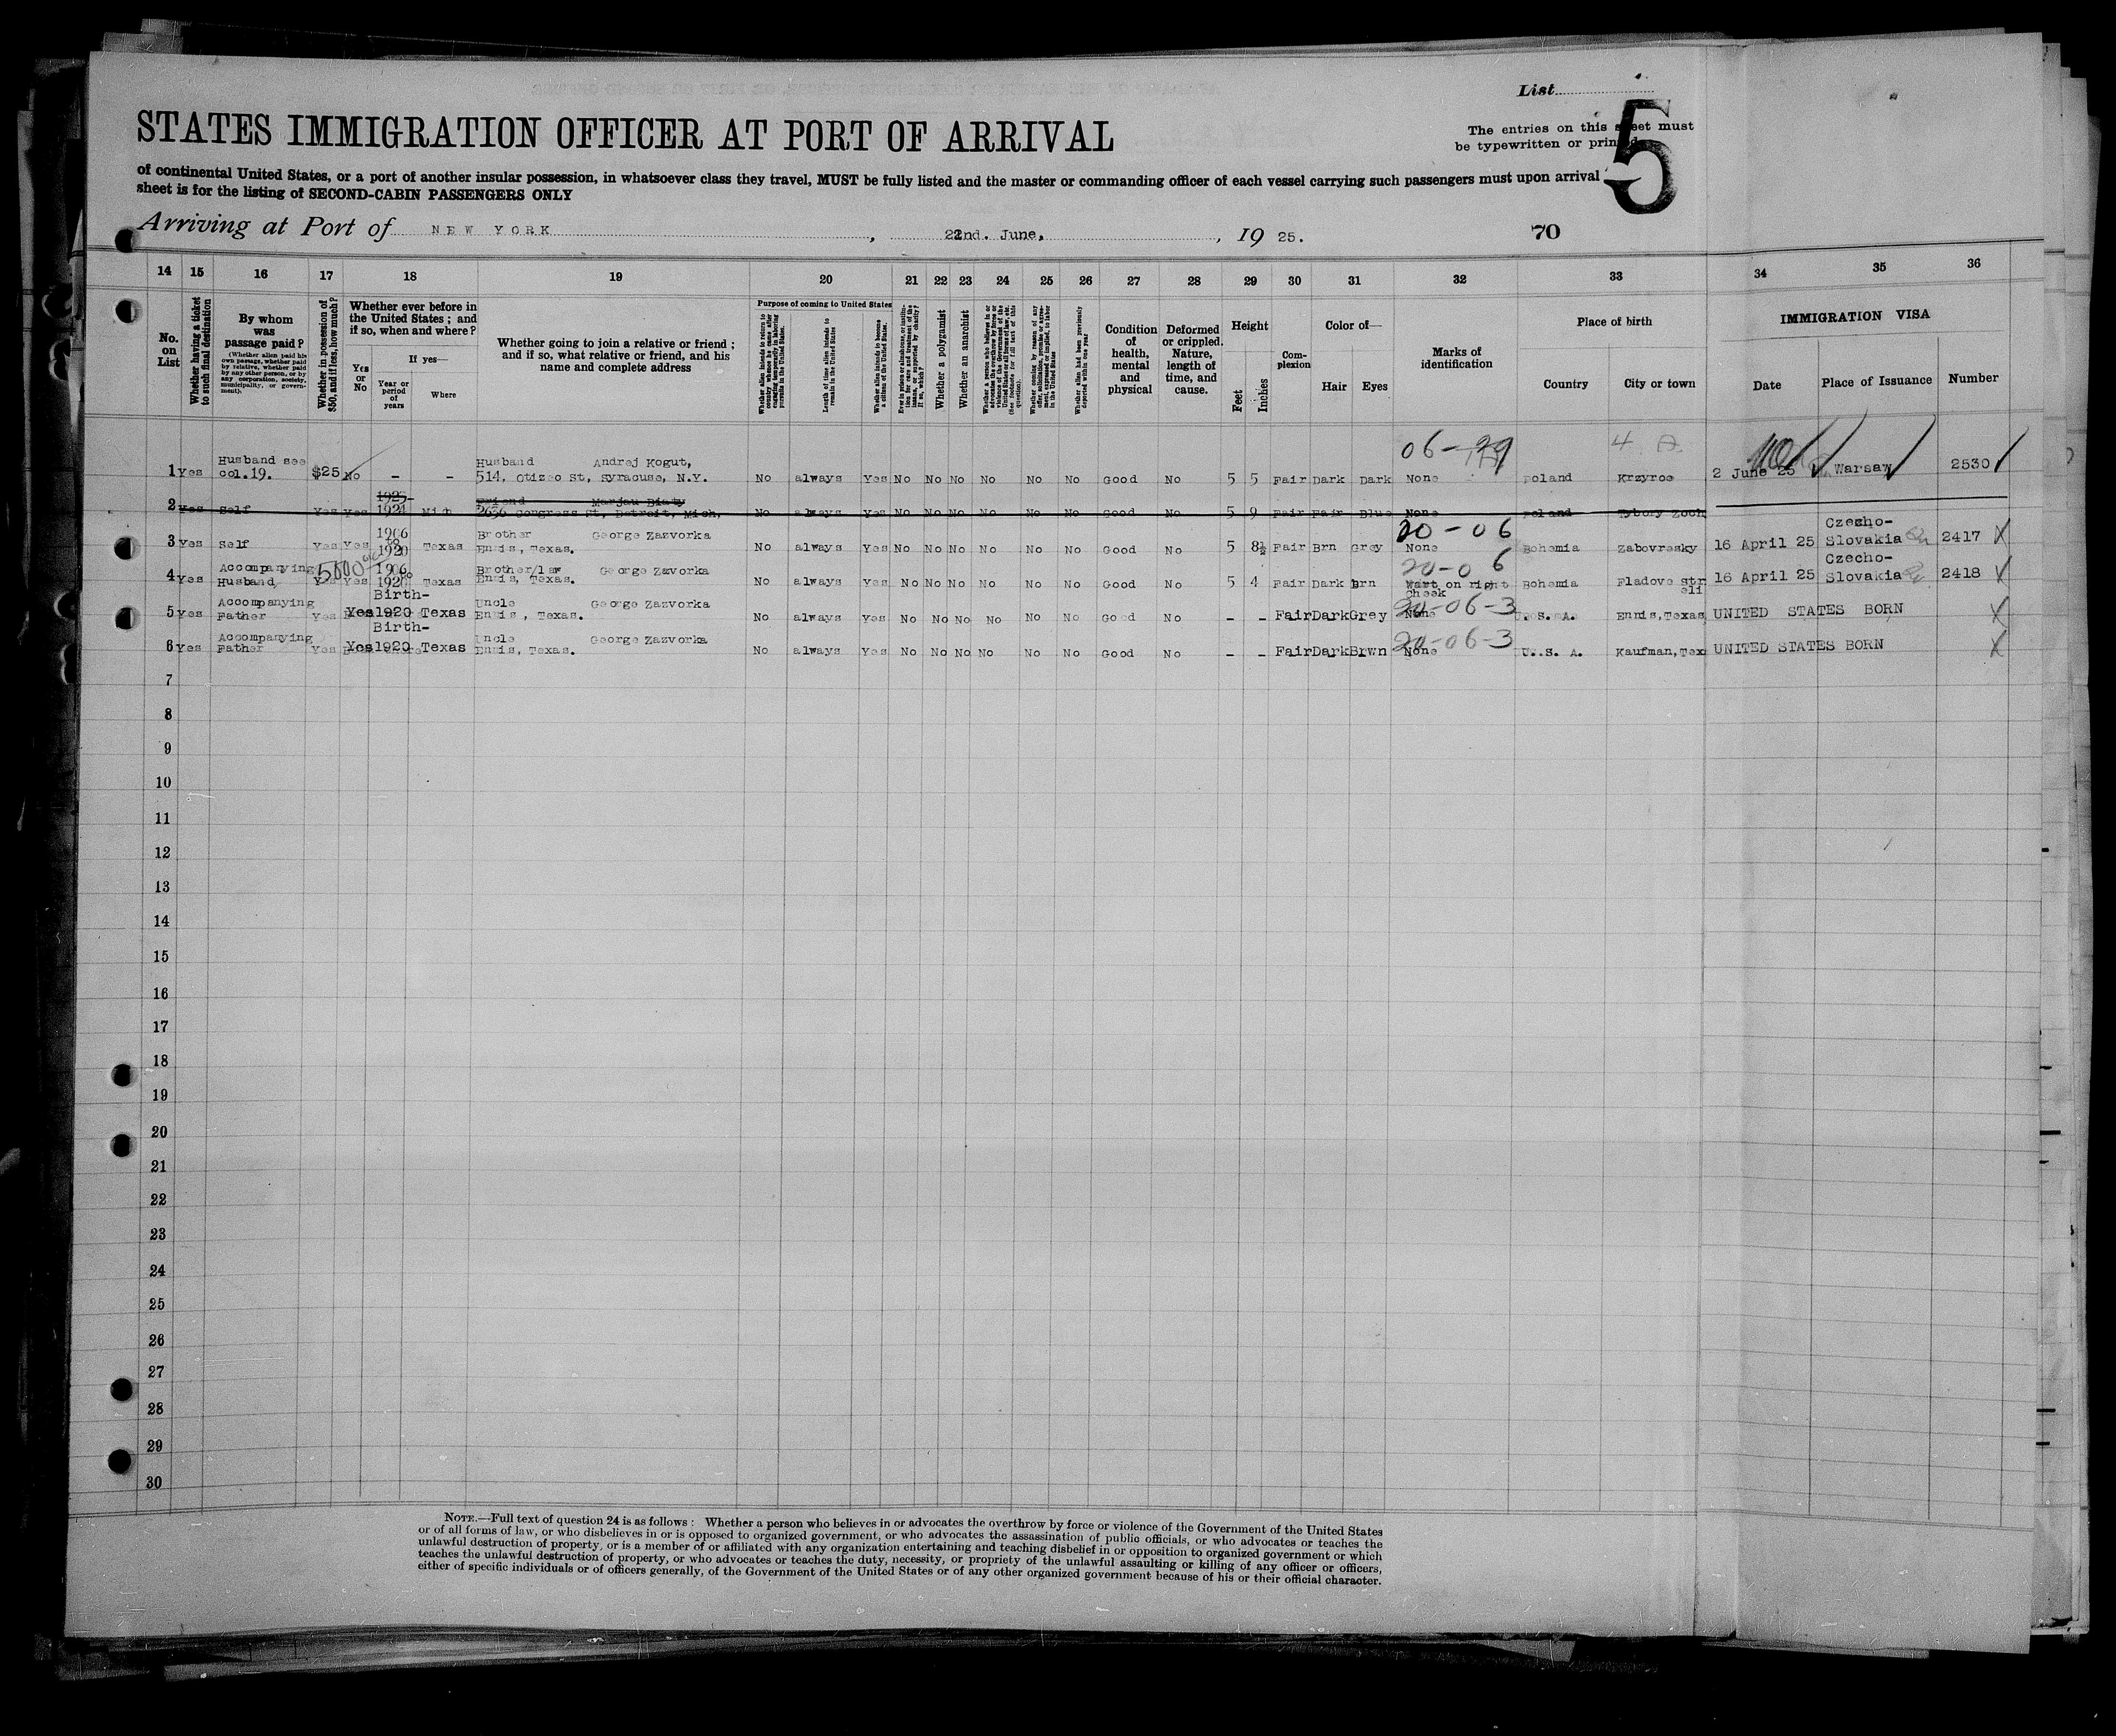 List
The entries on this sheet must
be typewritten or printed
5
STATES IMMIGRATION OFFICER AT PORT OF ARRIVAL
of continental United States, or a port of another insular possession, in whatsoever class they travel, MUST be fully listed and the master or commanding officer of each vessel carrying such passengers must upon arrival
sheet is for the listing of SECOND-CABIN PASSENGERS ONLY
Arriving at Port of NEW YORK , 22nd. June, , 19 25. 70
14 15 16 17 18 19 20 21 22 23 24 25 26 27 28 29 30 31 32 33 34 35 36
No. on List
Whether having a ticket to such final destination
By whom was passage paid?
(Whether alien paid his own passage, whether paid by relative, whether paid by any other person, or by any corporation, society, municipality, or government).
Whether in possession of $50, and if less, how much?
Whether ever before in the United States; and if so, when and where?
Yes or No
If yes—
Year or period of years
Where
Whether going to join a relative or friend; and if so, what relative or friend, and his name and complete address
Purpose of coming to United States
Whether alien intends to return to country whence he came after engaging temporarily in laboring pursuits in the United States.
Length of time alien intends to remain in the United States
Whether alien intends to become a citizen of the United States.
Ever in prison or almshouse, or institution for care and treatment of the insane, or supported by charity? If so, which?
Whether a polygamist
Whether an anarchist
Whether coming by reason of any offer, solicitation, promise or agreement, expressed or implied, to labor in the United States
Whether alien had been previously deported within one year
Condition of health, mental and physical
Deformed or crippled. Nature, length of time, and cause.
Height
Feet
Inches
Complexion
Color of—
Hair Eyes
Marks of identification
Place of birth
Country City or town
IMMIGRATION VISA
Date Place of Issuance Number
06-
1 Yes Husband see col.19. $25 No - - Husband Andrej Kogut, 514, Otizco St, Syracuse, N.Y. No always Yes No No No No No No Good No 5 5 Fair Dark Dark None Poland Krzyroe 2 June 25 Warsaw 2530
2 Yes Self Yes Yes 1923- 1924 Mich Friend Marjau Biaty 2656 Congress St, Detroit, Mich. No always Yes No No No No No No Good No 5 9 Fair Fair Blue None Poland Tybory Zoch
20-06
3 Yes Self Yes Yes 1906 to 1920 Texas Brother George Zazvorka Ennis, Texas. No always Yes No No No No No No Good No 5 8½ Fair Brn Grey None Bohemia Zabovresky 16 April 25 Czecho-Slovakia 2417
20-06
4 Yes Accompanying Husband 5000 Yes Yes 1906 1920 Texas Brother/law George Zazvorka Ennis, Texas. No always Yes No No No No No No Good No 5 4 Fair Dark Brn Wart on right Cheek Bohemia 16 April 25 Czecho-Slovakia 2418
20-06-3
5 Yes Accompanying Father Yes Yes Birth-1920 Texas Uncle George Zazvorka Ennis, Texas. No always Yes No No No No No No Good No - - Fair Dark Grey None U. S. A. Ennis, Texas UNITED STATES BORN
20-06-3
6 Yes Accompanying Father Yes Yes Birth-1920 Texas Uncle George Zazvorka Ennis, Texas. No always Yes No No No No No No Good No - - Fair Dark Brwn None U. S. A. Kaufman, Tex UNITED STATES BORN
7
8
9
10
11
12
13
14
15
16
17
18
19
20
21
22
23
24
25
26
27
28
29
30
NOTE.—Full text of question 24 is as follows: Whether a person who believes in or advocates the overthrow by force or violence of the Government of the United States
or of all forms of law, or who disbelieves in or is opposed to organized government, or who advocates the assassination of public officials, or who advocates or teaches the
unlawful destruction of property, or is a member of or affiliated with any organization entertaining and teaching disbelief in or opposition to organized government or which
teaches the unlawful destruction of property, or who advocates or teaches the duty, necessity, or propriety of the unlawful assaulting or killing of any officer or officers,
either of specific individuals or of officers generally, of the Government of the United States or of any other organized government because of his or their official character.